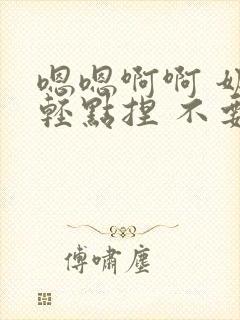 嗯嗯啊啊
輕點捏 不要
傅嘯塵